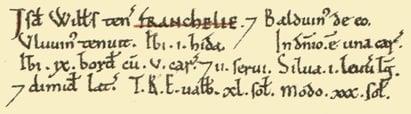 Isđ Witts ten̄ FRANCHELIE. 7 Balduin' de eo.
Vluuin' tenuit. Ibi .i. hida. In dnīo .ē una car̄.
Ibi .ix. borđ cū .v. car̄ 7 ii. serui. Silua .i. leuū lḡ.
7 dimiđ lat̄. T.R.E. ualb̄ .xl. soł. Modo .xxx. soł.